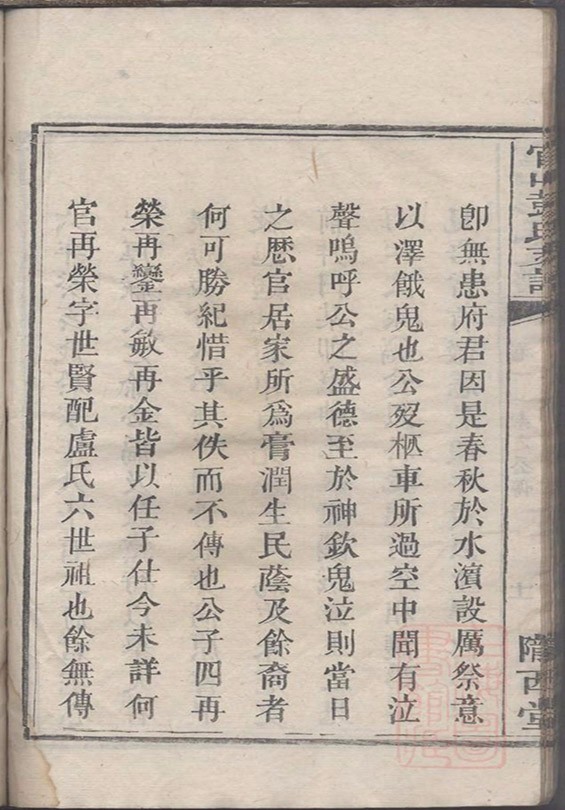 卽無患府君因是春秋於水濵設厲祭意
以澤餓鬼也公歿柩車所過空中聞有泣
聲嗚呼公之盛德至於神欽鬼泣則當日
之厯官居家所爲膏潤生民蔭及餘裔者
何可勝紀惜乎其佚而不傳也公子四再
榮再鑾再敏再金皆以任子仕今未詳何
官再榮字世賢配盧氏六世祖也餘無傳
隴西堂